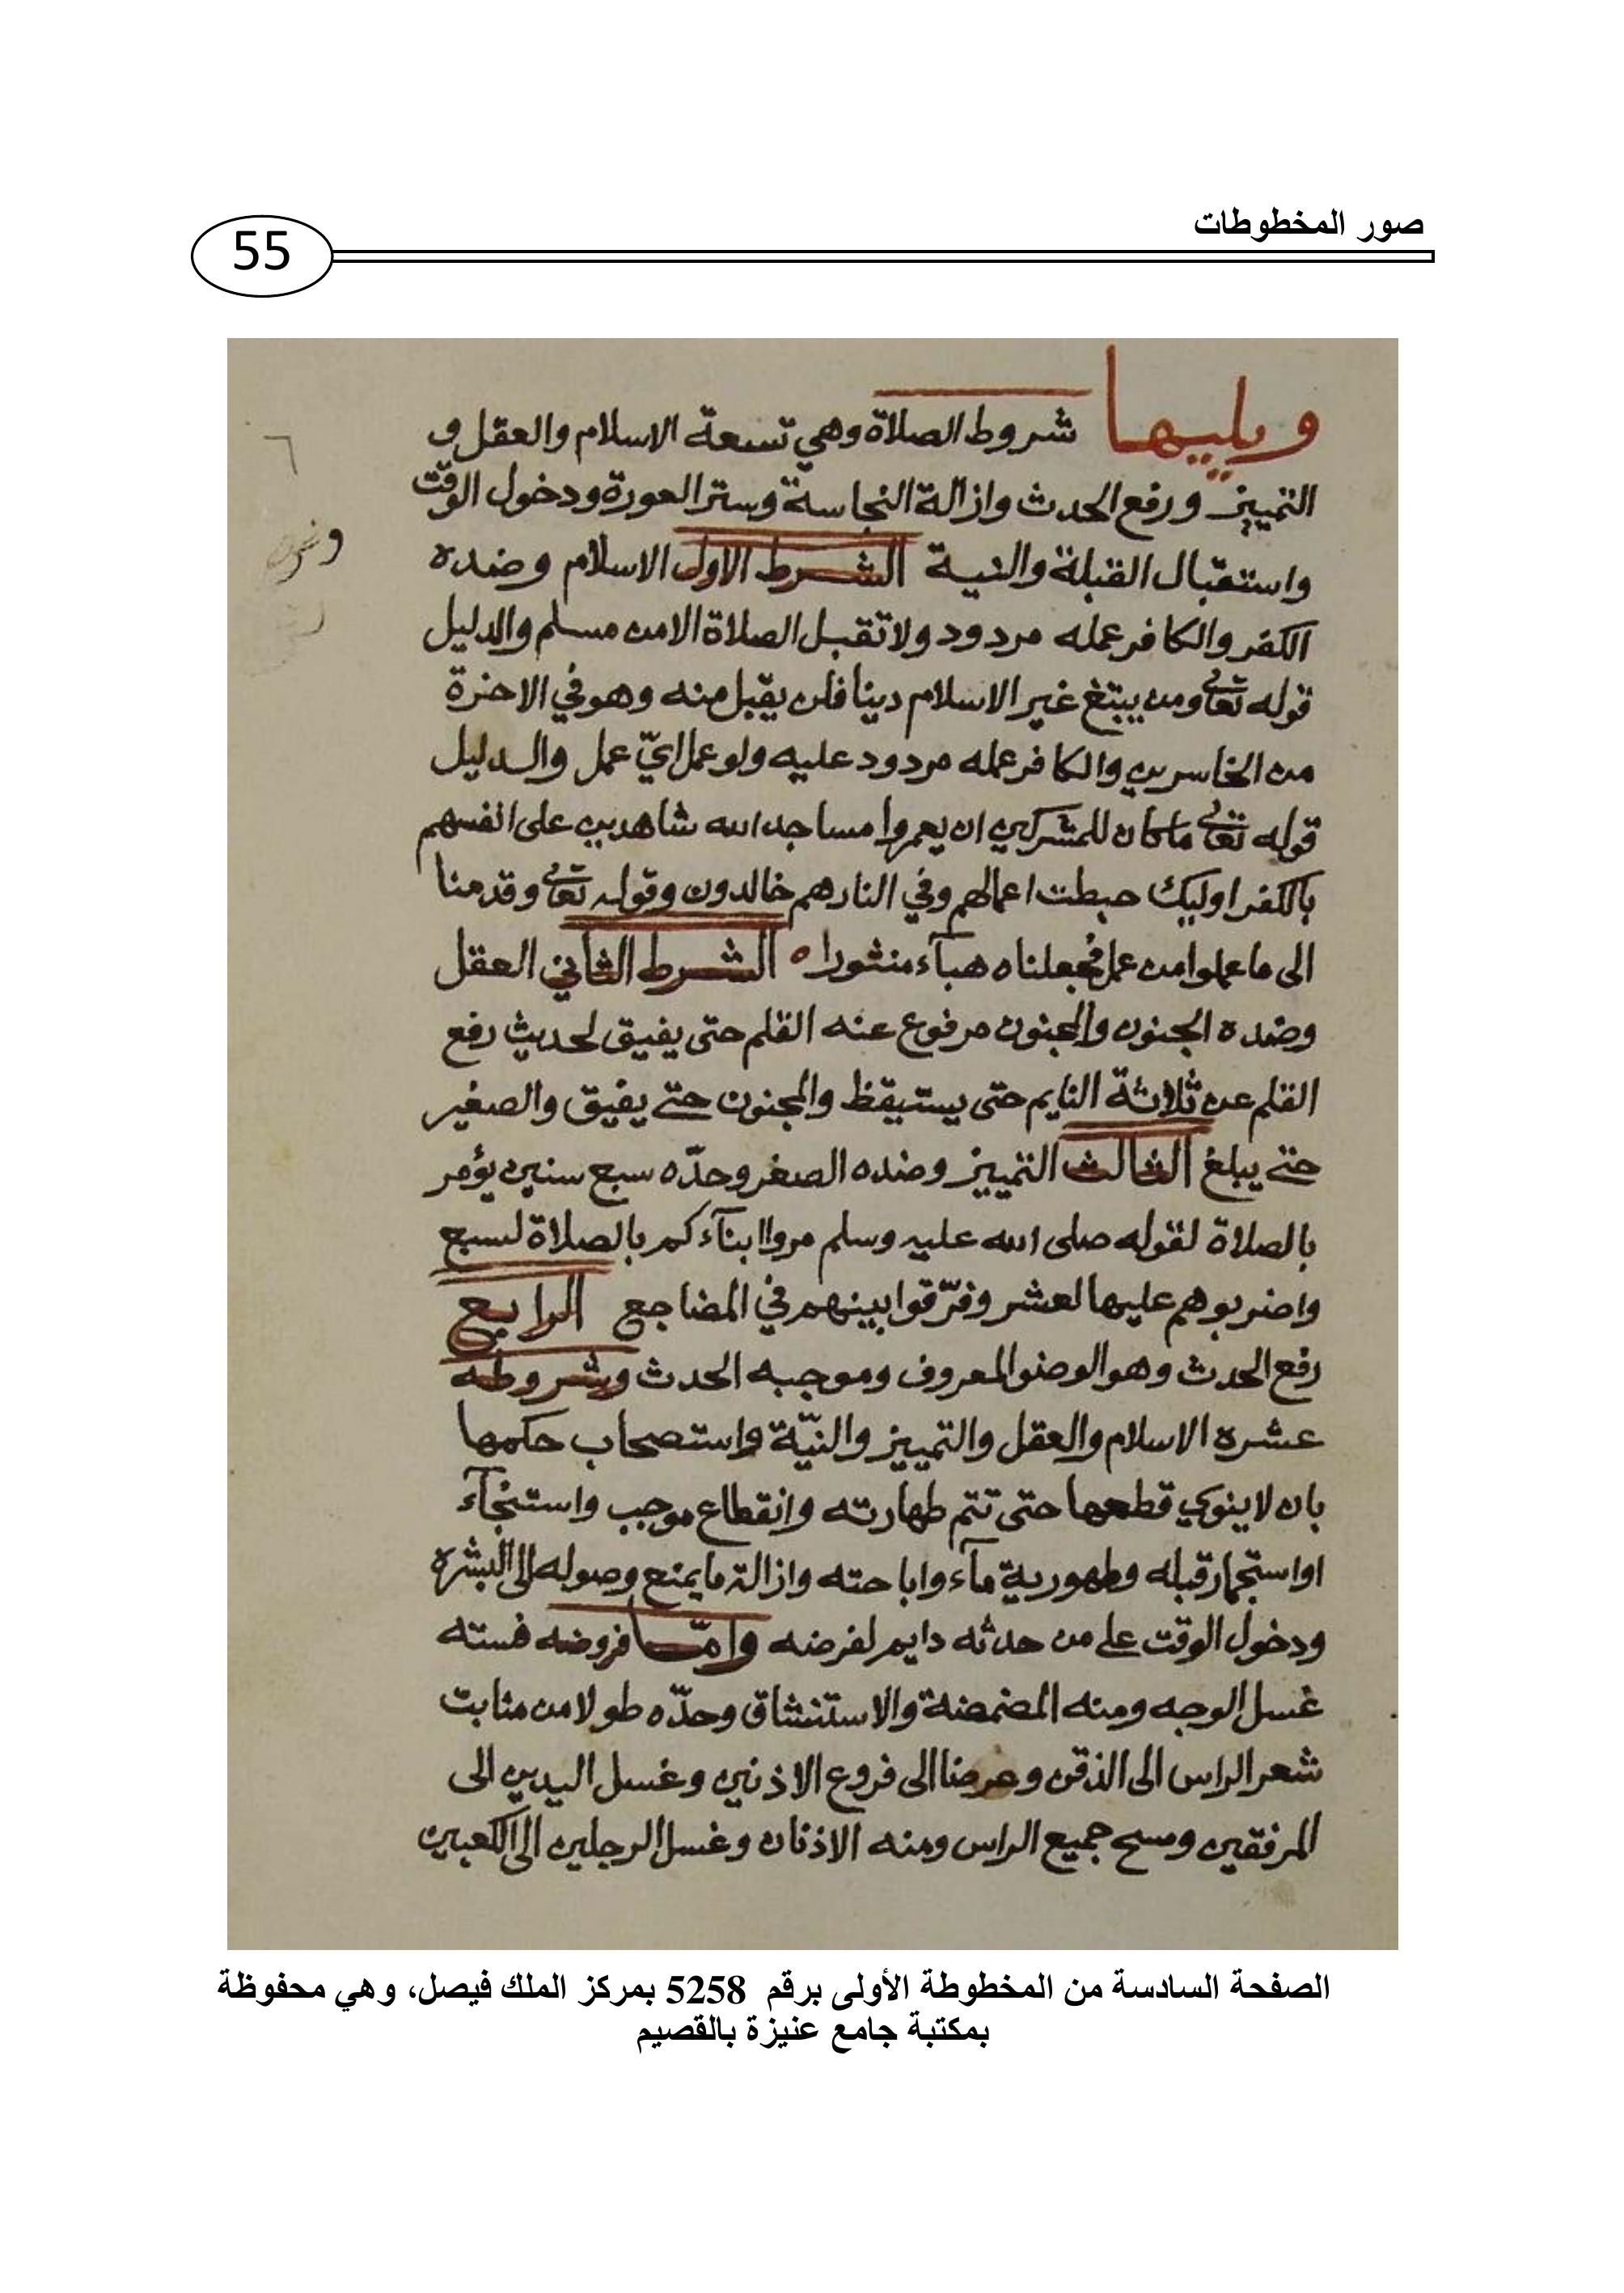 صور المخطوطات
55
ويليها شروط الصلاة وهي تسعة الاسلام والعقل و
التمييز ورفع الحدث وازالة النجاسة وستر العورة ودخول الوقت
واستقبال القبلة والنية الشرط الاول الاسلام وضده
الكفر والكافر عمله مردود ولا تقبل الصلاة الا من مسلم والدليل
قوله تعالى ومن يبتغ غير الاسلام دينا فلن يقبل منه وهو في الاخرة
من الخاسرين والكافر عمله مردود عليه ولو عمل ايّ عمل والدليل
قوله تعالى ما كان للمشركين ان يعمروا مساجد الله شاهدين على انفسهم
بالكفر اوليك حبطت اعمالهم وفي النار هم خالدون وقوله تعالى وقدمنا
الى ما عملوا من عمل فجعلناه هبآء منثورا ه الشرط الثاني العقل
وضده الجنون والمجنون مرفوع عنه القلم حتى يفيق لحديث رفع
القلم عن ثلاثة النايم حتى يستيقظ والمجنون حتى يفيق والصغير
حتى يبلغ الثالث التمييز وضده الصغر وحدّه سبع سنين يؤمر
بالصلاة لقوله صلى الله عليه وسلم مروا ابنآءكم بالصلاة لسبع
واضربوهم عليها لعشر وفرّقوا بينهم في المضاجع الرابع
رفع الحدث وهو الوضو المعروف وموجبه الحدث وشروطه
عشره الاسلام والعقل والتمييز والنيّة واستصحاب حكمها
بان لا ينوي قطعها حتى تتم طهارته وانقطاع موجب واستنجآء
او استجمار قبله وطهورية مآء واباحته وازالة ما يمنع وصوله الى البشره
ودخول الوقت على من حدثه دايم لفرضه وامّا فروضه فسته
غسل الوجه ومنه المضمضة والاستنشاق وحدّه طولا من منابت
شعر الراس الى الذقن وعرضا الى فروع الاذنين وغسل اليدين الى
المرفقين ومسح جميع الراس ومنه الاذنان وغسل الرجلين الى الكعبين
٦
الصفحة السادسة من المخطوطة الأولى برقم 5258 بمركز الملك فيصل، وهي محفوظة
بمكتبة جامع عنيزة بالقصيم